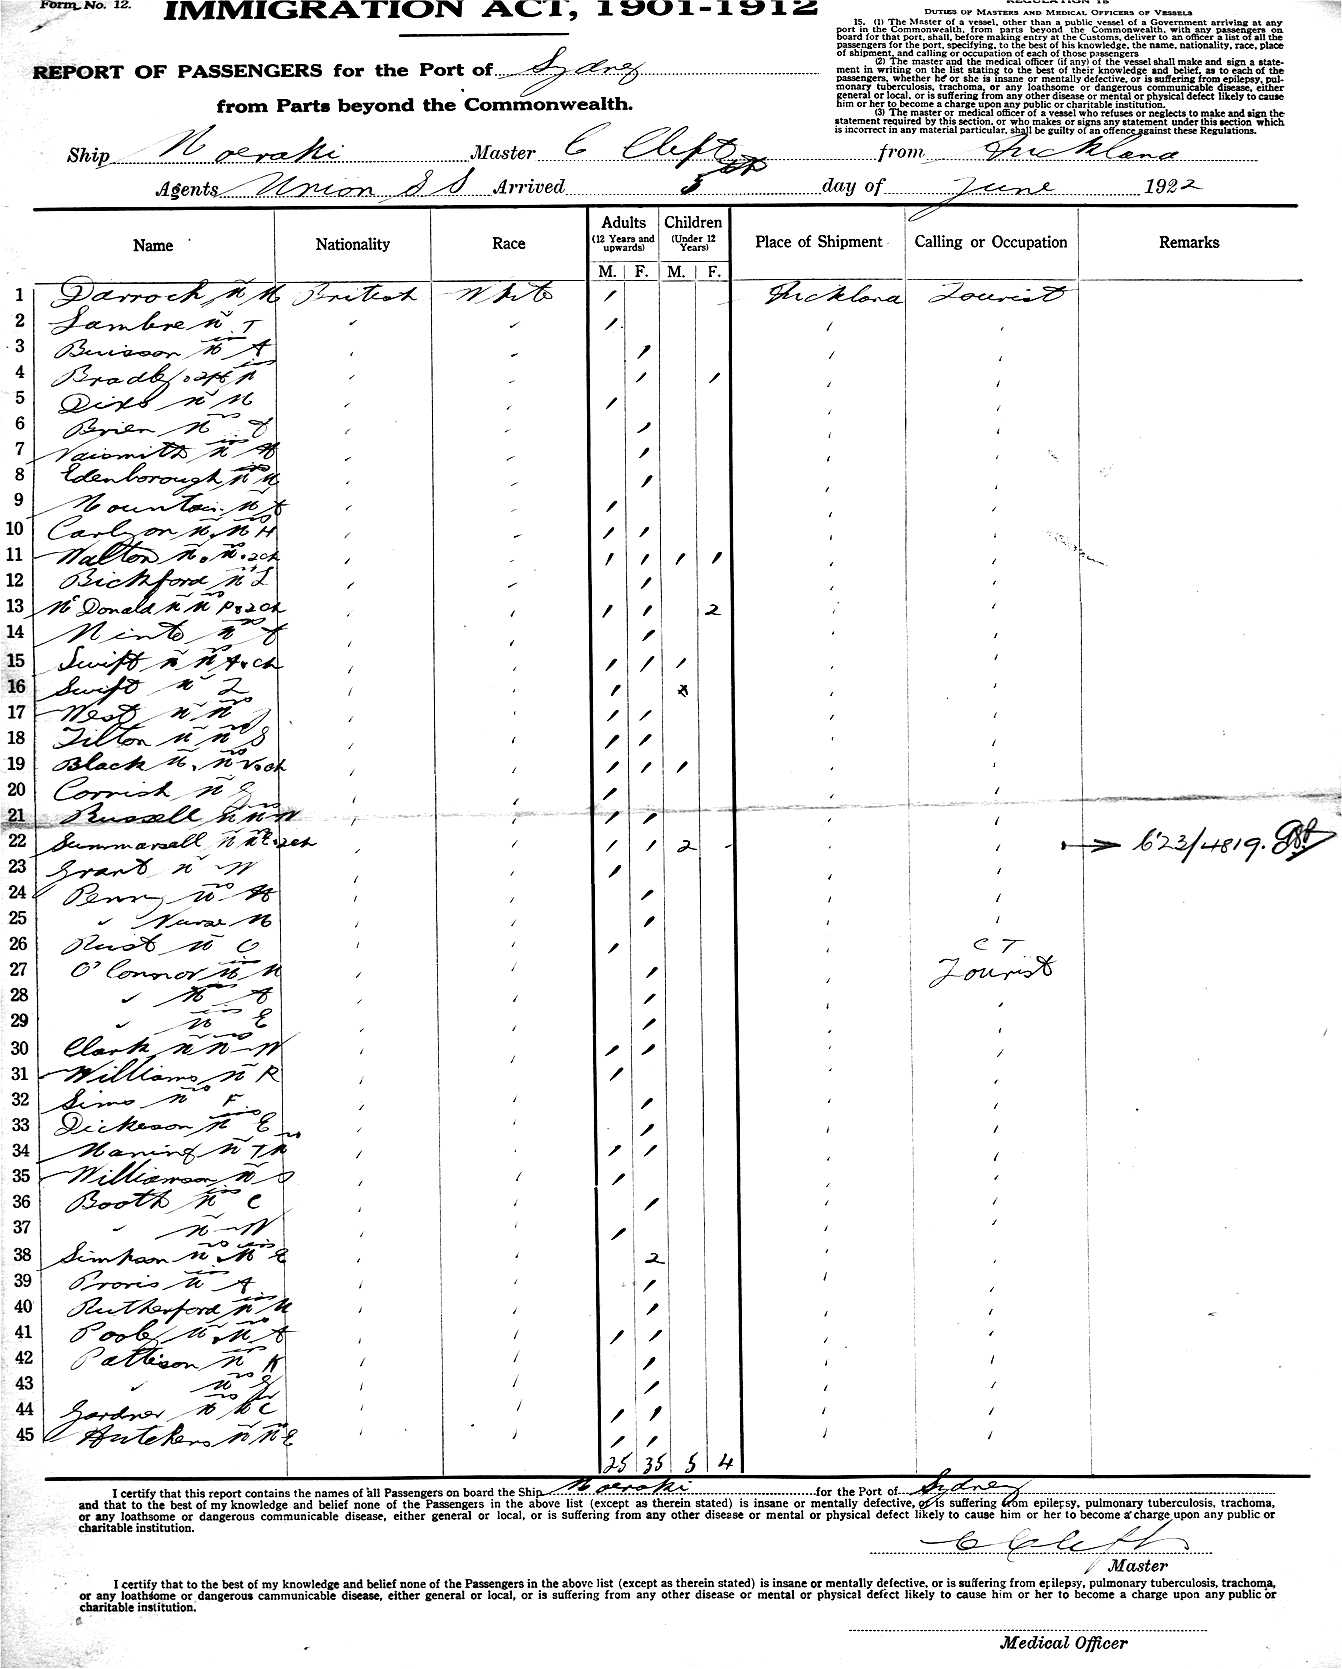 Form No. 12.
IMMIGRATION ACT, 1901-1912
REPORT OF PASSENGERS for the Port of Sydney
from Parts beyond the Commonwealth.
REGULATION 15
DUTIES OF MASTERS AND MEDICAL OFFICERS OF VESSELS
15. (1) The Master of a vessel, other than a public vessel of a Government arriving at any
port in the Commonwealth, from parts beyond the Commonwealth, with any passengers on
board for that port, shall, before making entry at the Customs, deliver to an officer a list of all the
passengers for the port, specifying, to the best of his knowledge, the name, nationality, race, place
of shipment, and calling or occupation of each of those passengers
(2) The master and the medical officer (if any) of the vessel shall make and sign a state-
ment in writing on the list stating to the best of their knowledge and belief, as to each of the
passengers, whether he or she is insane or mentally defective, or is suffering from epilepsy, pul-
monary tuberculosis, trachoma, or any loathsome or dangerous communicable disease, either
general or local, or is suffering from any other disease or mental or physical defect likely to cause
him or her to become a charge upon any public or charitable institution.
(3) The master or medical officer of a vessel who refuses or neglects to make and sign the
statement required by this section, or who makes or signs any statement under this section which
is incorrect in any material particular, shall be guilty of an offence against these Regulations.
Ship Moeraki Master C Clift from Auckland
Agents Union S S Arrived 5th day of June 1922
Name Nationality Race Adults (12 Years and upwards) Children (Under 12 Years) Place of Shipment Calling or Occupation Remarks
M. F. M. F.
1 Darroch Mr M British White ' Auckland Tourist
2 Lambre Mr T
3 Buisson Miss A
4
5 Dixs Mr M
6 Brien Mrs
7 Naismith Miss
8 Edenborough Miss M
9 Mountain Mr
10 Carlyon Mr. Mrs H
11 Walton Mr. Mrs. 2ch
12 Bickford Mrs L
13 McDonald Mr Mrs P & 2 ch 2
14 Minto Mrs
15 Swift Mr Mrs A & ch
16 Swift Mr L
17 West Mr Mrs J
18 Tilton Mr Mrs S
19 Black Mr. Mrs V & ch
20 Cornish Mr
21 Russell Mr Mrs W
22 Summersell Mr Mrs E. 2ch 2 C23/4819.
23 Grant Mr W
24 Penny Mrs
25 " Nurse M
26 Rust Mr O C T
27 O'Connor Miss M Tourist
28 " Miss A
29 " Miss E
30 Clark Mr Mrs W
31 Williams Mr R
32 Sims Mrs F.
33 Dickeson Miss E
34 Maning Mr Mrs
35 Williamson Mr
36 Booth Miss C
37 " Mr W
38 Simpson Mrs. Miss E 2
39 Provis Miss A
40 Rutherford Miss M
41 Poole Mr. Mrs A
42 Pattison Mrs K
43 " Mrs
44 Gardner Mr Mrs C
45 Hutchens Mr Mrs E
25 35 5 4
I certify that this report contains the names of all Passengers on board the Ship Moeraki for the Port of Sydney
and that to the best of my knowledge and belief none of the Passengers in the above list (except as therein stated) is insane or mentally defective, or is suffering from epilepsy, pulmonary tuberculosis, trachoma,
or any loathsome or dangerous communicable disease, either general or local, or is suffering from any other disease or mental or physical defect likely to cause him or her to become a charge upon any public or
charitable institution.
C Clift
Master
I certify that to the best of my knowledge and belief none of the Passengers in the above list (except as therein stated) is insane or mentally defective, or is suffering from epilepsy, pulmonary tuberculosis, trachoma,
or any loathsome or dangerous cammunicable disease, either general or local, or is suffering from any other disease or mental or physical defect likely to cause him or her to become a charge upon any public or
charitable institution.
Medical Officer